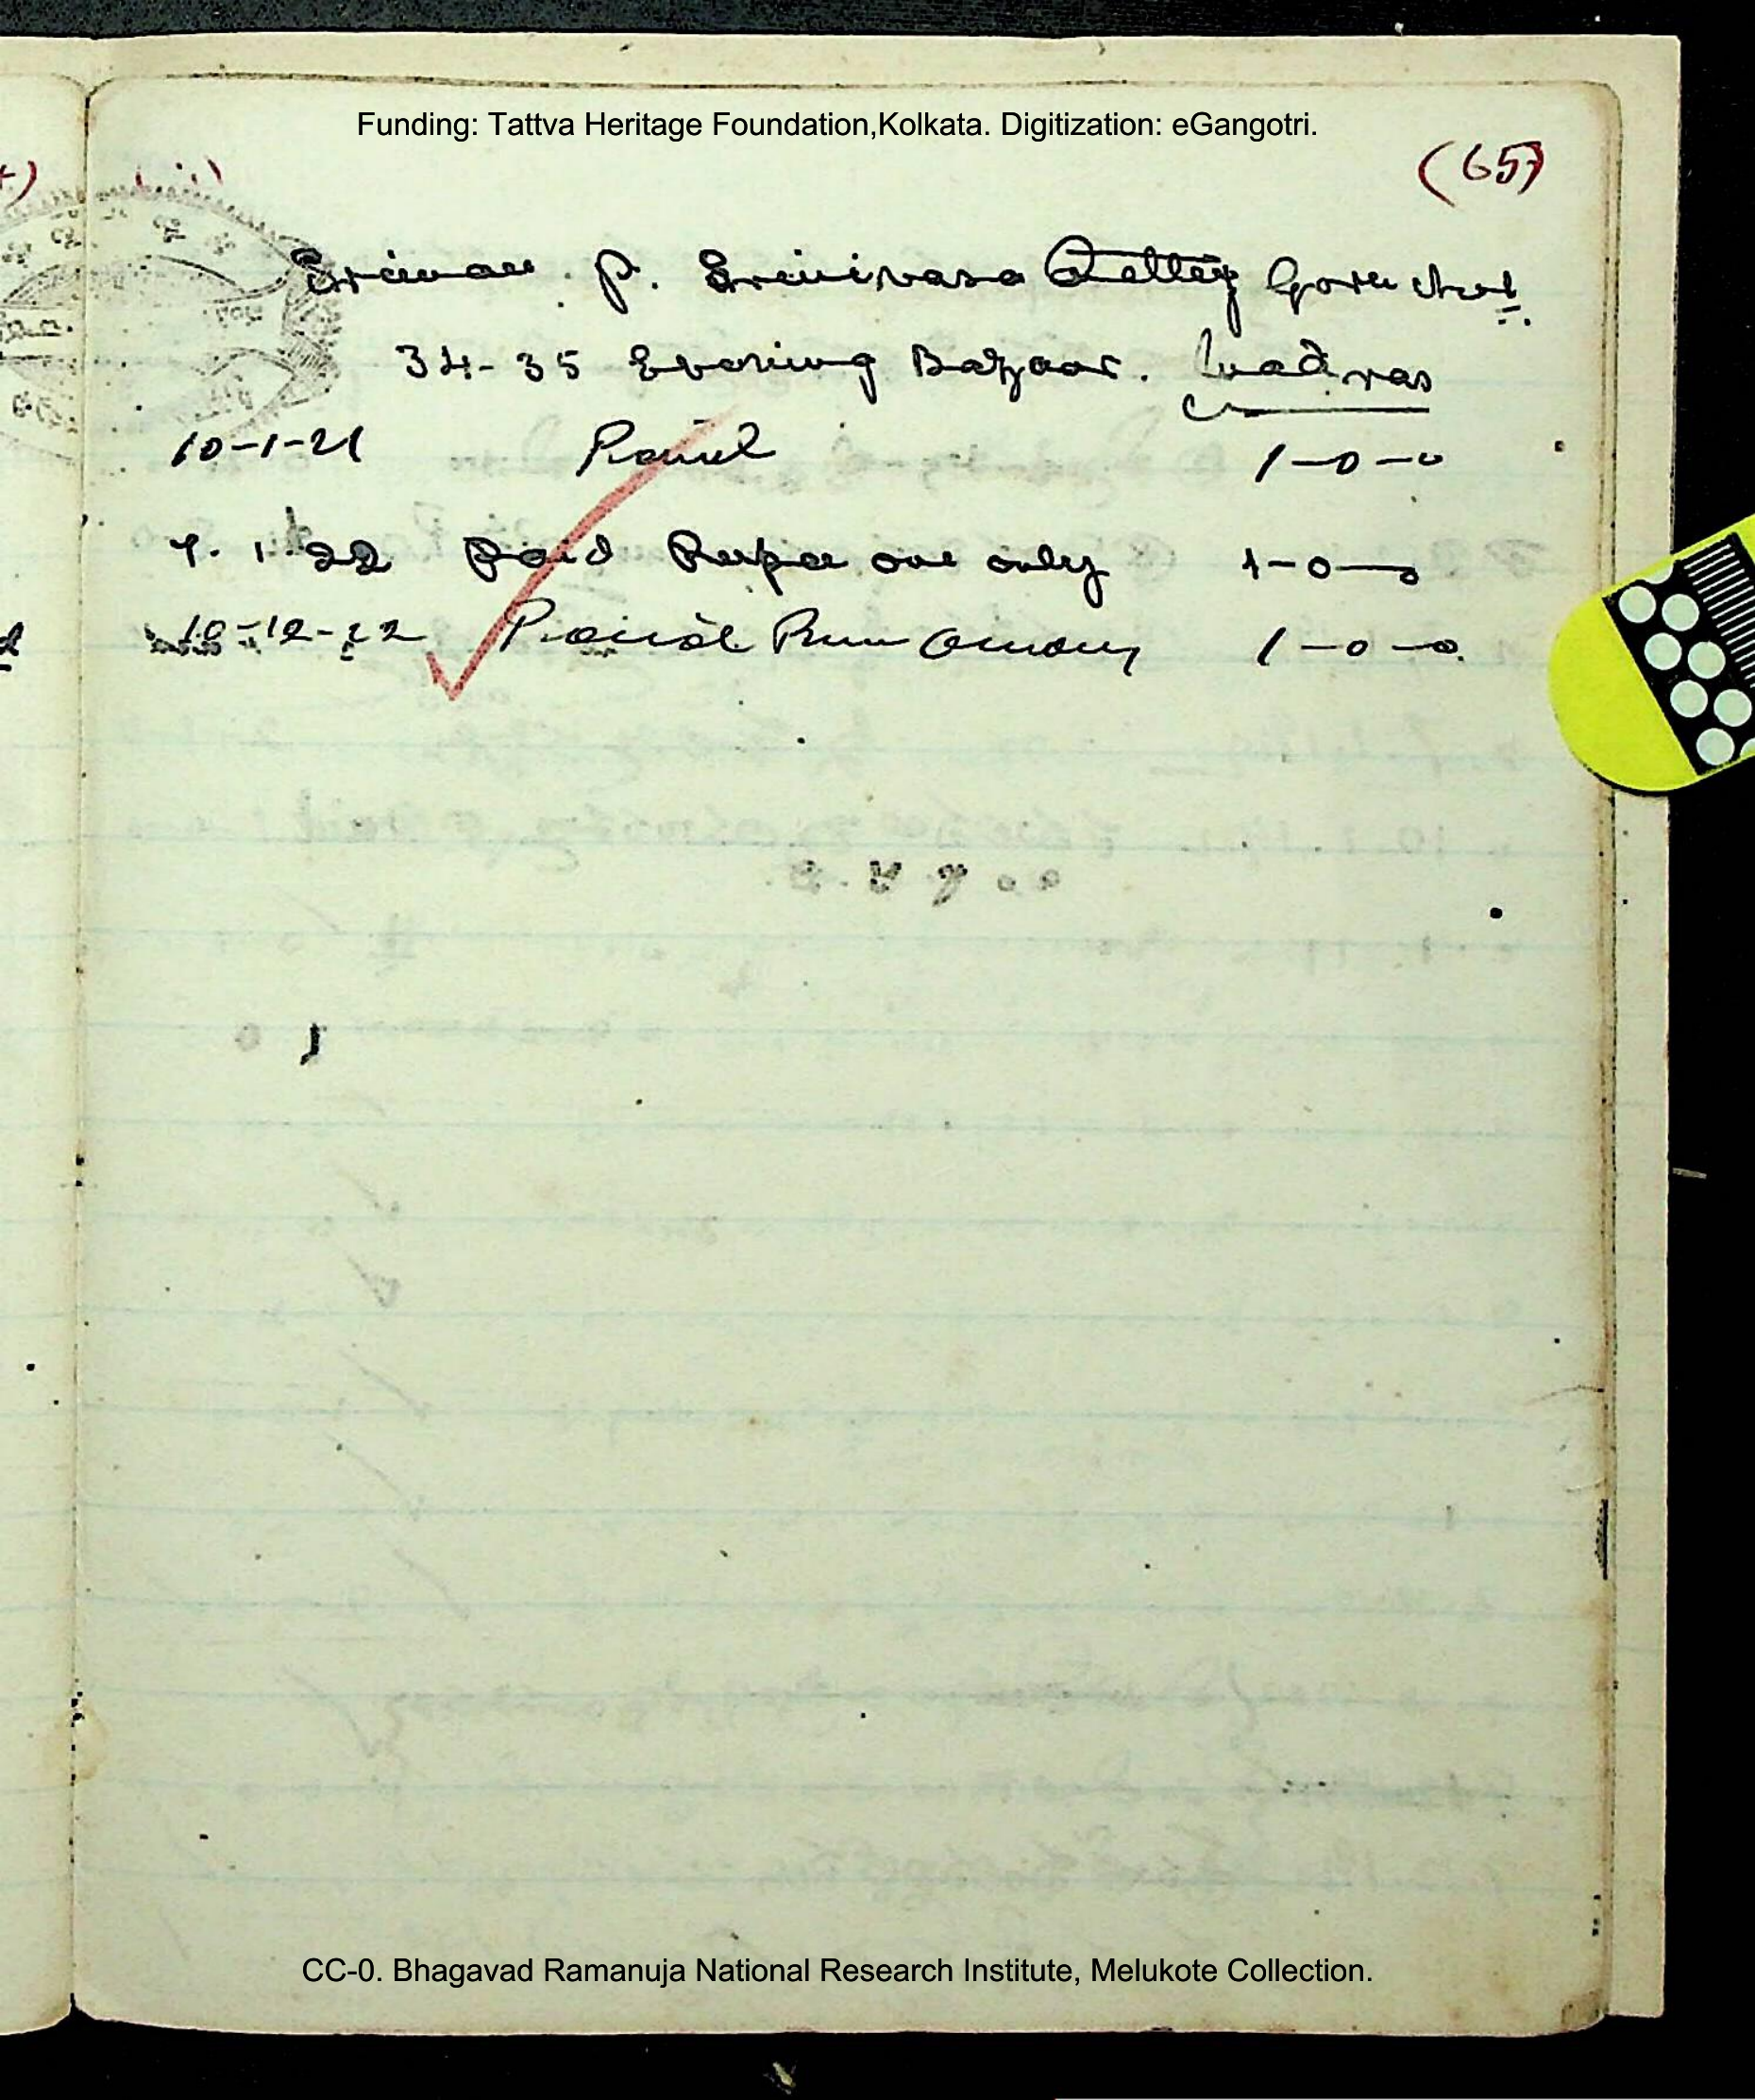 Funding: Tattva Heritage Foundation,Kolkata. Digitization: eGangotri.
(65)
Sriman P. Srinivasa Chetty
34-35 Evening Bazaar. Madras
10-1-21 Paid 1-0-0
7. 1. 22 Paid Rupee one only 1-0-0
10-12-22 Paid 1-0-0
CC-0. Bhagavad Ramanuja National Research Institute, Melukote Collection.